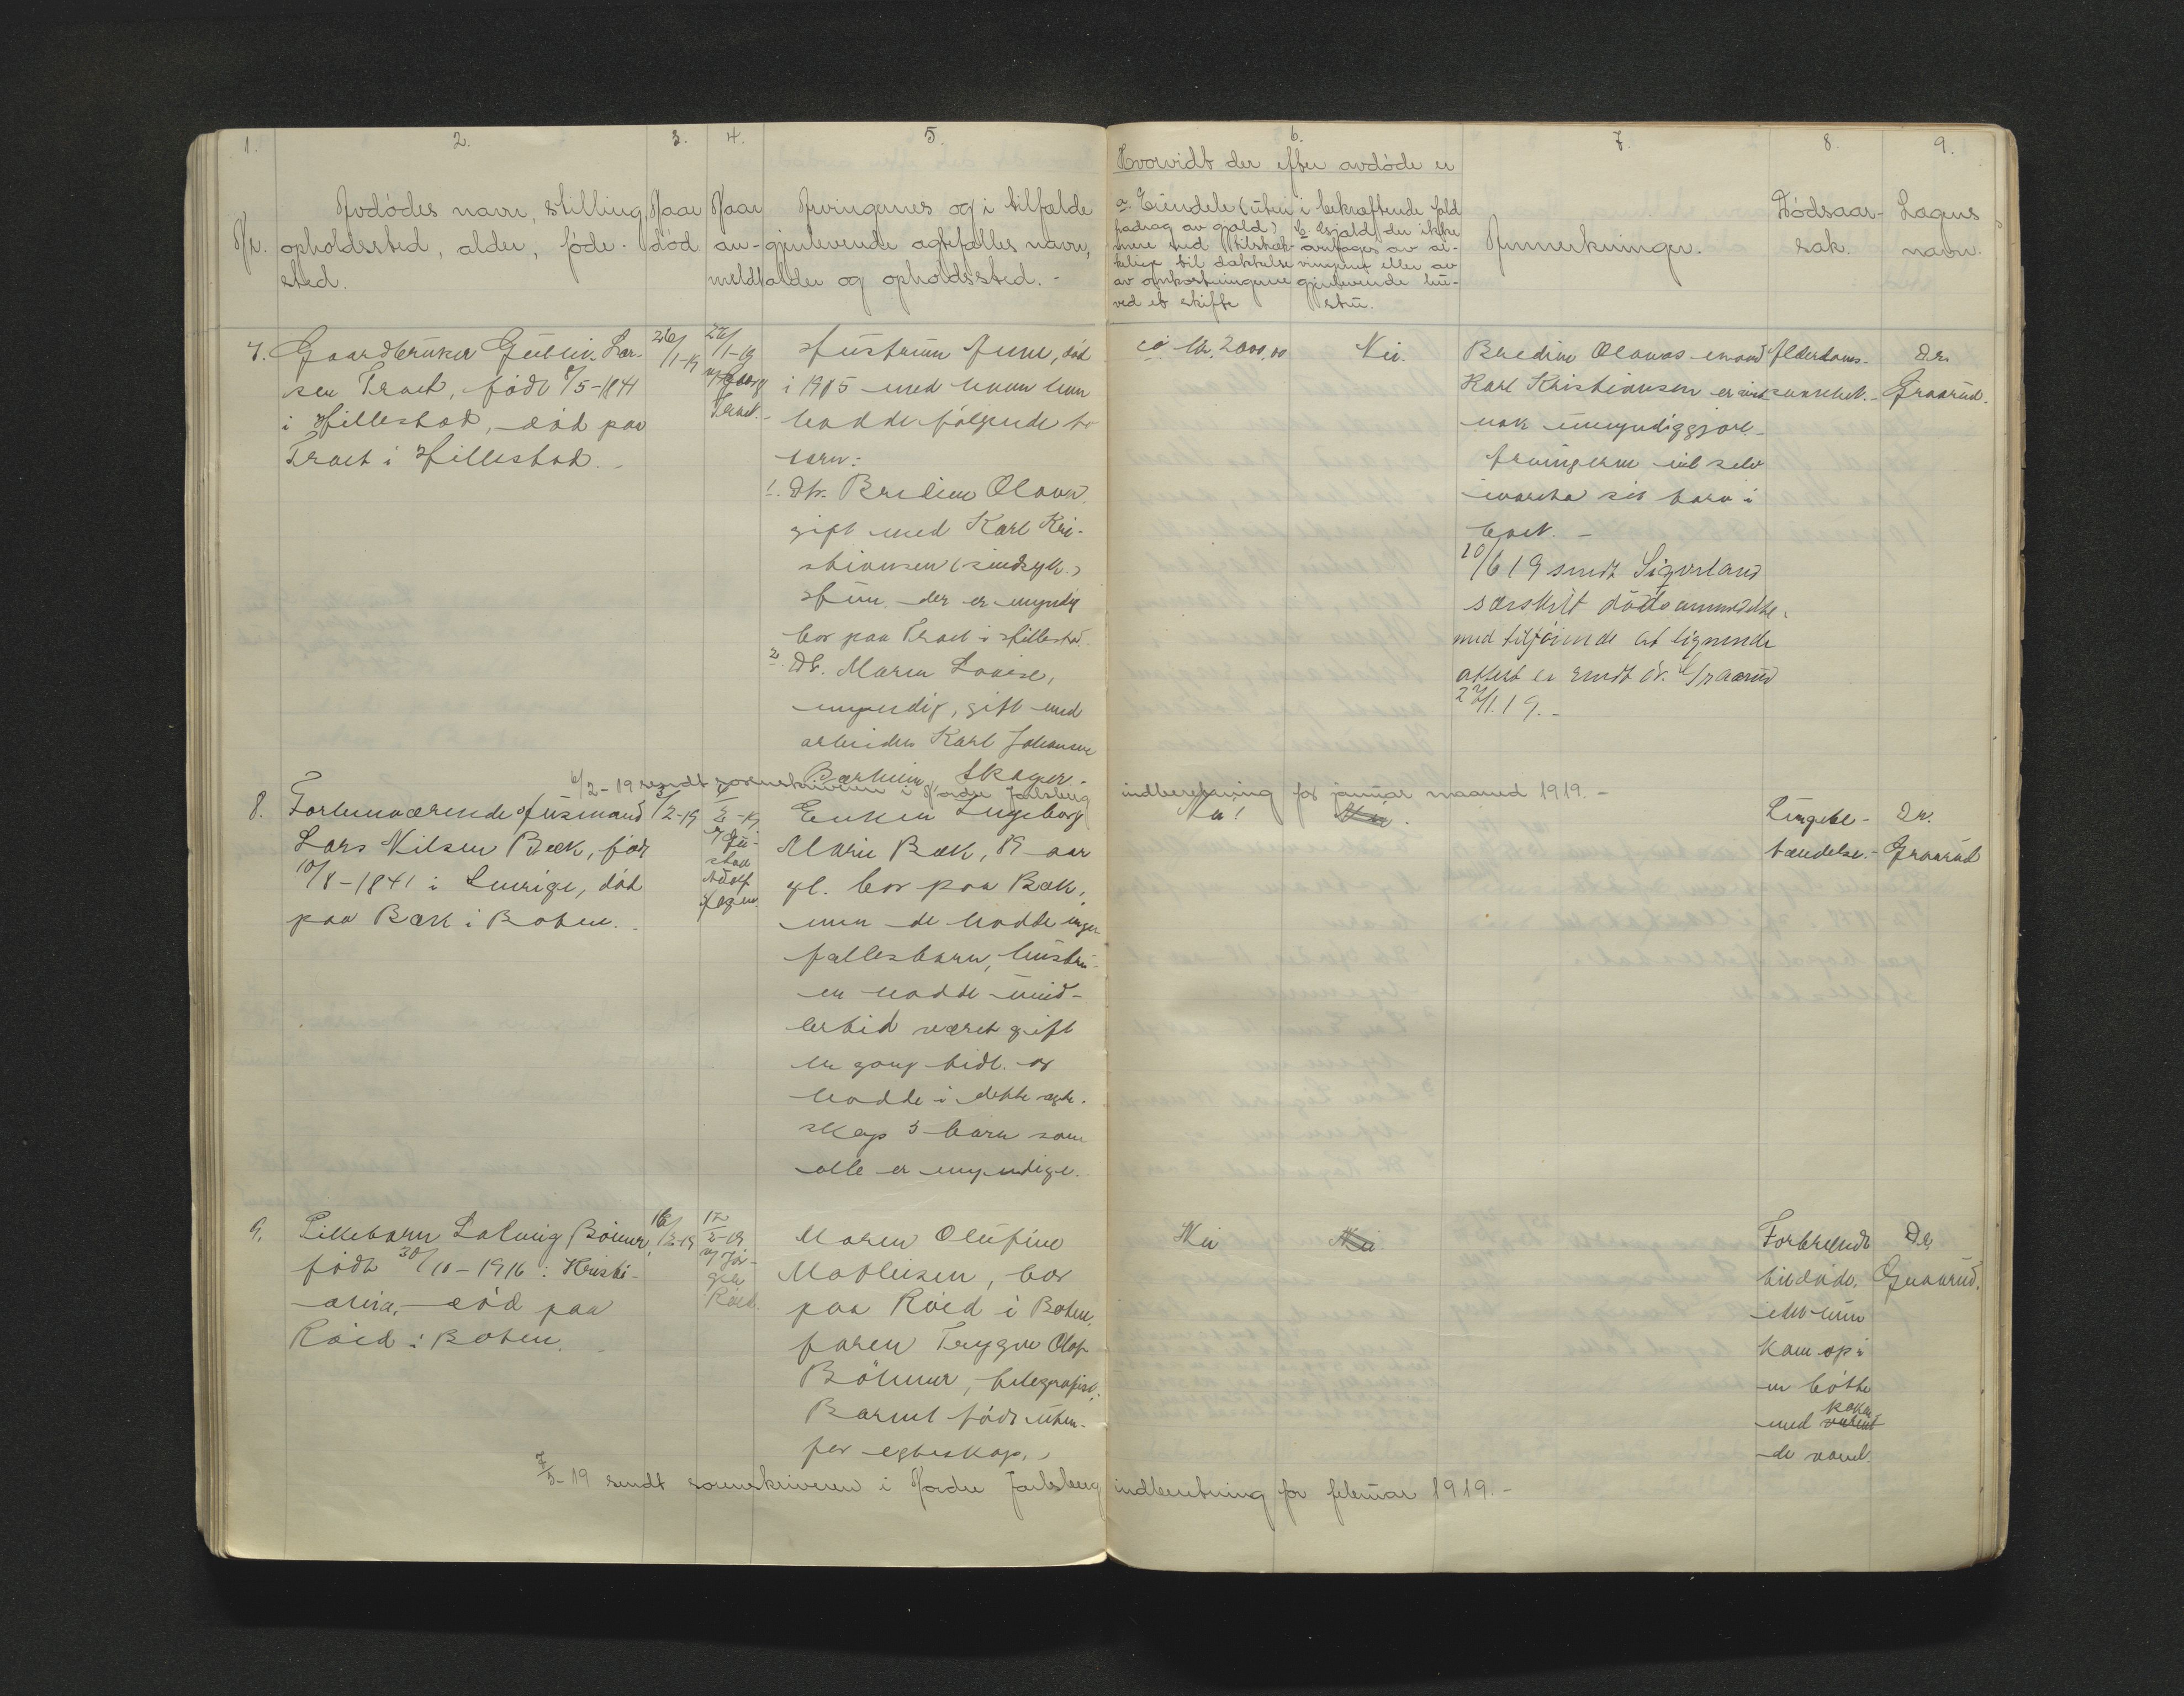 1.
2.
3.
4.
5.
Nr.
Avdødes navn, stilling,
opholdssted, alder, føde-
sted.
Naar
død
Naar
an-
meldt
Arvingernes og i tilfælde
gjenlevende agtefælles navn,
alder og opholdssted. -
6.
7.
8.
9.
Hvorvidt der efter avdøde er
a. Eiendele (uten
fradrag av gjæld)
mere end tilstræk-
kelige til dækkelse
av omkostningerne
ved et skifte
i bekræftende fald
b. Gjæld der ikke
overtages av ar-
vingerne eller av
gjenlevende hu-
stru.
Anmerkninger.
Dødsaar-
sak.
Lægens
navn.
7.
Gaardbruker Gulbr. Lar-
sen Traet, født 8/5-1841
i Hillestad, død paa
Traet i Hillestad.
26/1-19
27/1-19
av Georg
Traet.
Hustruen Anne, død
i 1905 med hvem han
hadde følgende
barn:
1. Dtr. Bredine Olava
gift med Karl Kri-
stiansen (sindsyk.)
Hun der er myndig
bor paa Traet i Hillestad.
2. Dt. Maren Lovise,
myndig, gift med
arbeider Karl Johansen
Skoger.
ca kr. 2000,00
Nei.
Bredine Olavas mand
Karl Kristiansen er sind
umyndiggjort.
Arvingerne vil selv
ivareta sit tarv i
boet. -
10/6 19 sendt Sigvrland
særskilt dødsanmeldelse
med tilføiende at lignende
attest er sendt dr. Graarud
27/1.19. -
Alderdoms-
svakhet. -
Dr.
Graarud.
6/2-19 sendt sorenskriveren i Nordre Jarlsberg indberetning for januar maaned 1919. -
8.
Forhenværende Husmand
Lars Nilsen Bæk, født
10/8-1841 i Sverige, død
paa Bæk i Botne.
/2-19
/2-19
av Gu-
stav
Adolf
Enken Ingeborg
Marie Bæk, 89 aar
gl. bor paa Bæk,
men de hadde ingen
fællesbarn, hustru-
en hadde imid-
lertid været gift
en gang tidl. og
hadde i dette egte-
skap 3 barn som
alle er myndige.
Nei!
Nei.
Lungebe-
tændelse. -
Dr.
Graarud
9.
Pikebarn Solveig Böhmer,
født 30/10-1916 i Kristi-
ania, død paa
Røed i Botne.
16/2-19
17/2-19
av Jør-
gen
Røed.
Maren Olufine
Mathisen, bor
paa Røed i Botne,
faren Trygve Olaf
Böhmer, telegrafist.
Barnet født uten-
for egteskap.
Nei
Nei
Forbrændt
tildøde,
idet hun
kom op i
en bøtte
med koken-
de vand.
Dr.
Graarud.
7/3-19 sendt sorenskriveren i Nordre Jarlsberg indberetning for februar 1919. -